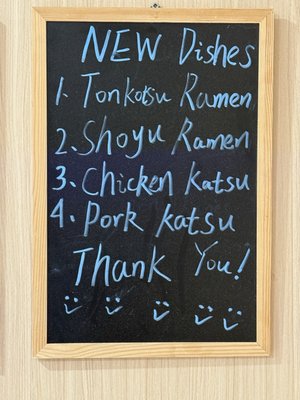 NEW Dishes
1. Tonkotsu Ramen
2. Shoyu Ramen
3. Chicken Katsu
4. Pork Katsu
Thank You!